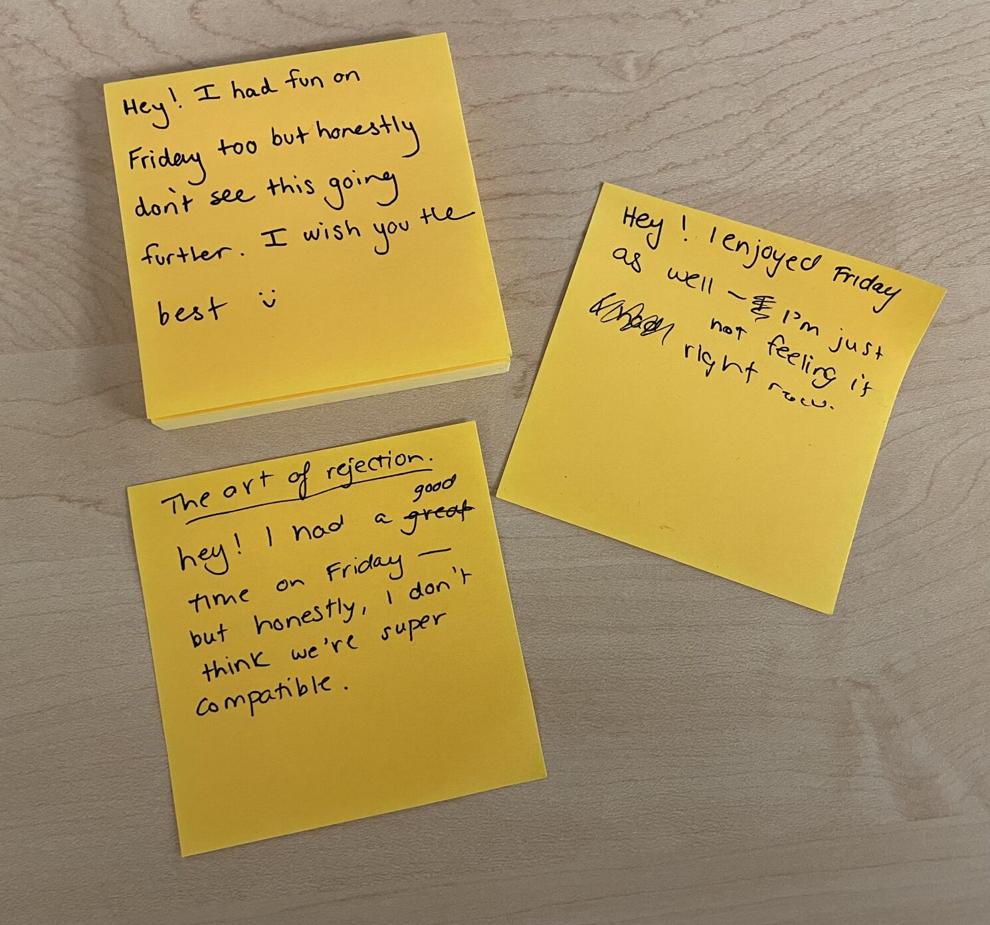 Hey! I had fun on
Friday too but honestly
don't see this going
further. I wish you the
best
Hey! I enjoyed Friday
as well – I'm just
not feeling it
right now.
The art of rejection.
good
hey! I had a great
time on Friday —
but honestly, I don't
think we're super
compatible.